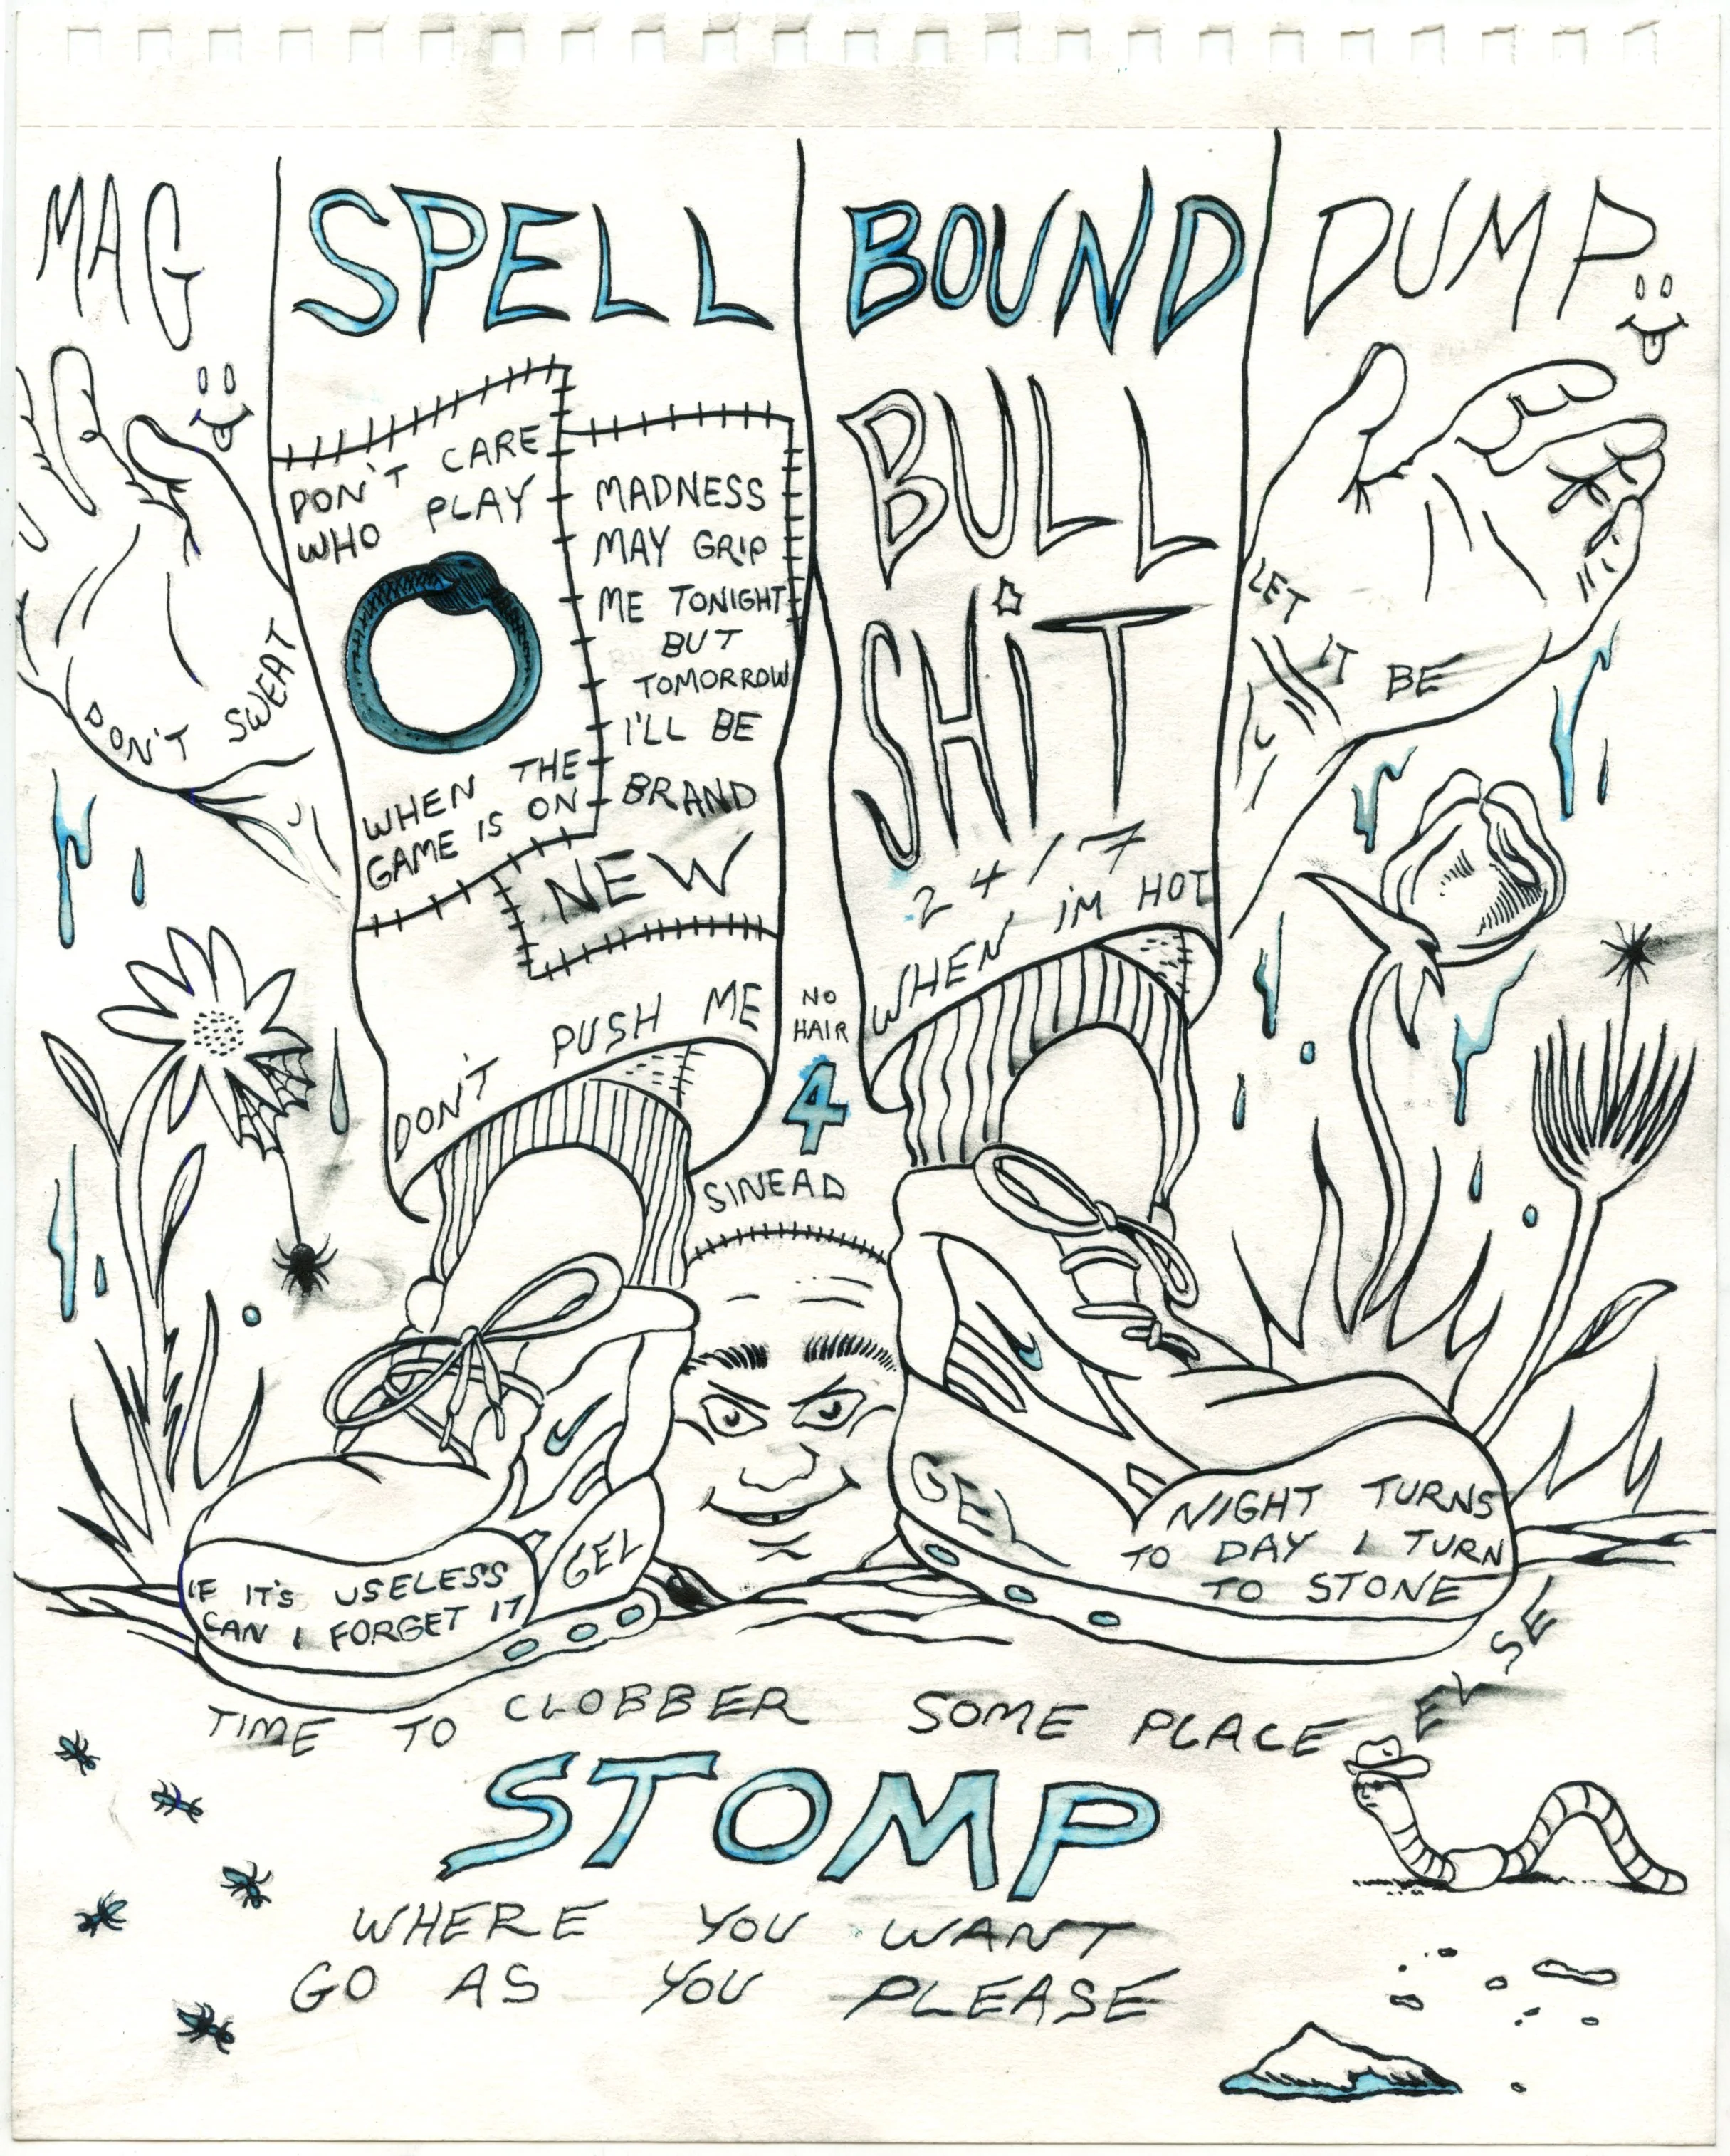 MAG
SPELL
BOUND
DUMP
DON'T CARE
WHO PLAY
WHEN THE
GAME IS ON
MADNESS
MAY GRIP
ME TONIGHT
BUT
TOMORROW
I'LL BE
BRAND
NEW
DON'T PUSH ME
BULL
SHiT
24/7
WHEN iM HOT
DON'T SWEAT
LET IT BE
NO
HAIR
4
SINEAD
GEL
IF IT'S USELESS
CAN I FORGET IT
GEL
NIGHT TURNS
TO DAY I TURN
TO STONE
TIME TO CLOBBER SOME PLACE ELSE
STOMP
WHERE YOU WANT
GO AS YOU PLEASE